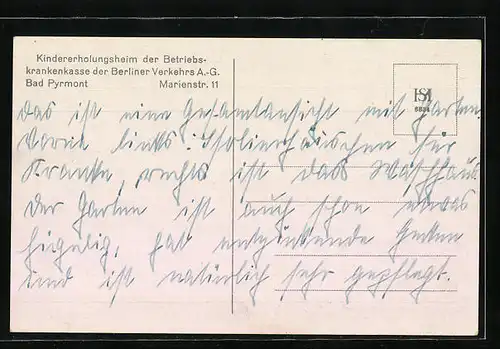 Kindererholungsheim der Betriebs-
krankenkasse der Berliner Verkehrs A.-G.
Bad Pyrmont Marienstr. 11
HSH
6834
das ist eine Gesamtansicht mit Garten.
Vorne links: Isolierhäuschen für
Kranke, rechts ist das Waschhaus
Der Garten ist auch schon etwas
hügelig, hat entzückende Hecken
und ist natürlich sehr gepflegt.